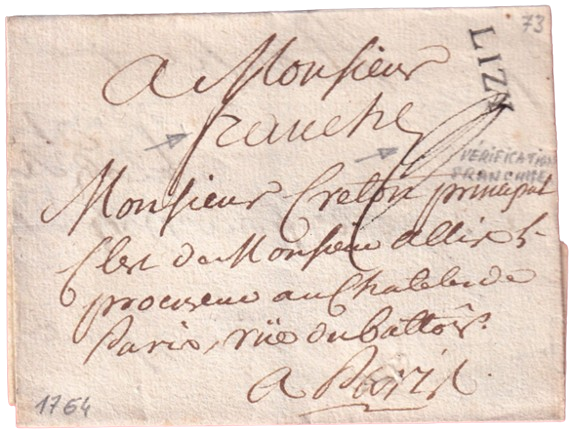 73
LIZY
A Monsieur
franche
VÉRIFICATION
FRANCHISE
Monsieur Creton principal
Clerc de Monsieur allix
procureur au Chatelet de
Paris, rüe du battoir
a Paris
1764